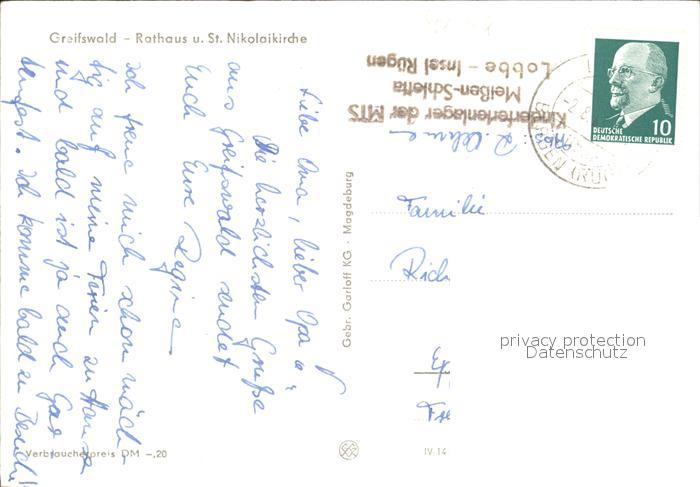 Greifswald – Rathaus u. St. Nikolaikirche
Liebe Oma, lieber Opa u.
Die herzlichsten Grüße
aus Greifswald sendet
Euch Eure Regina
Ich freue mich schon mäch-
tig auf meine Ferien zu Hause
und bald ist ja auch Gar
tenfest. Ich komme bald zu Besuch!
Verbraucherpreis DM –,20
Gebr. Garloff KG · Magdeburg
IV 14
Kinderferienlager der MTS
Meißen-Schletta
Lobbe – Insel Rügen
Abs.: R.
Familie
Rich
DEUTSCHE
DEMOKRATISCHE REPUBLIK
10
(RÜG
privacy protection
Datenschutz